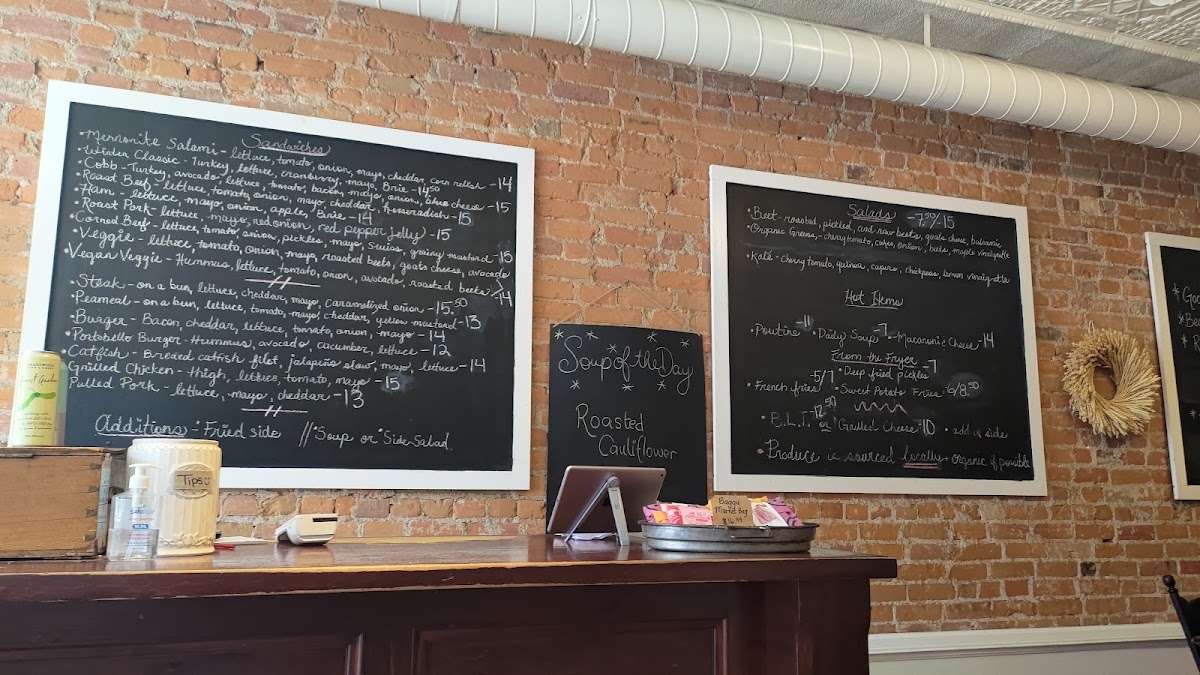 Sandwiches
• Mennonite Salami - lettuce, tomato, onion, mayo, cheddar, corn relish - 14
• Winter Classic - Turkey, lettuce, cranberry, mayo, Brie - 14.50
• Cobb - Turkey, avocado, lettuce, tomato, bacon, mayo, onion, blue cheese - 15
• Roast Beef - lettuce, tomato, onion, mayo, cheddar, horseradish - 15
• Ham - lettuce, mayo, onion, apple, Brie - 14
• Roast Pork - lettuce, mayo, red onion, red pepper jelly - 15
• Corned Beef - lettuce, tomato, onion, pickles, mayo, swiss, grainy mustard - 15
• Veggie - lettuce, tomato, onion, mayo, roasted beets, goats cheese, avocado
• Vegan Veggie - Hummus, lettuce, tomato, onion, avocado, roasted beets - 14
• Steak - on a bun, lettuce, cheddar, mayo, caramelized onion - 15.50
• Peameal - on a bun, lettuce, tomato, mayo, cheddar, yellow mustard - 13
• Burger - Bacon, cheddar, lettuce, tomato, onion, mayo - 14
• Portobello Burger - Hummus, avocado, cucumber, lettuce - 12
• Catfish - Breaded catfish filet, jalapeño slaw, mayo, lettuce - 14
Grilled Chicken - thigh, lettuce, tomato, mayo - 15
Pulled Pork - lettuce, mayo, cheddar - 13
Additions - Fried side // • Soup or • Side Salad
Tips
Soup of the Day
Roasted
Cauliflower
Baggu
Market Bag
$16.99
Salads - 7.50/15
• Beet - roasted, pickled, and raw beets, goats cheese, balsamic
• Organic Greens, - cherry tomato, cukes, onion, beets, maple vinaigrette
• Kale - cherry tomato, quinoa, capers, chickpeas, lemon vinaigrette
Hot Items
• Poutine - 11 • Daily Soup - 7 • Macaroni & Cheese - 14
From the Fryer
• Deep fried pickles - 7
• French fries - 5/7 • Sweet Potato Fries 6/8.50
• B.L.T. 12.50 or • Grilled Cheese - 10 • add a side
• Produce is sourced locally + organic if possible